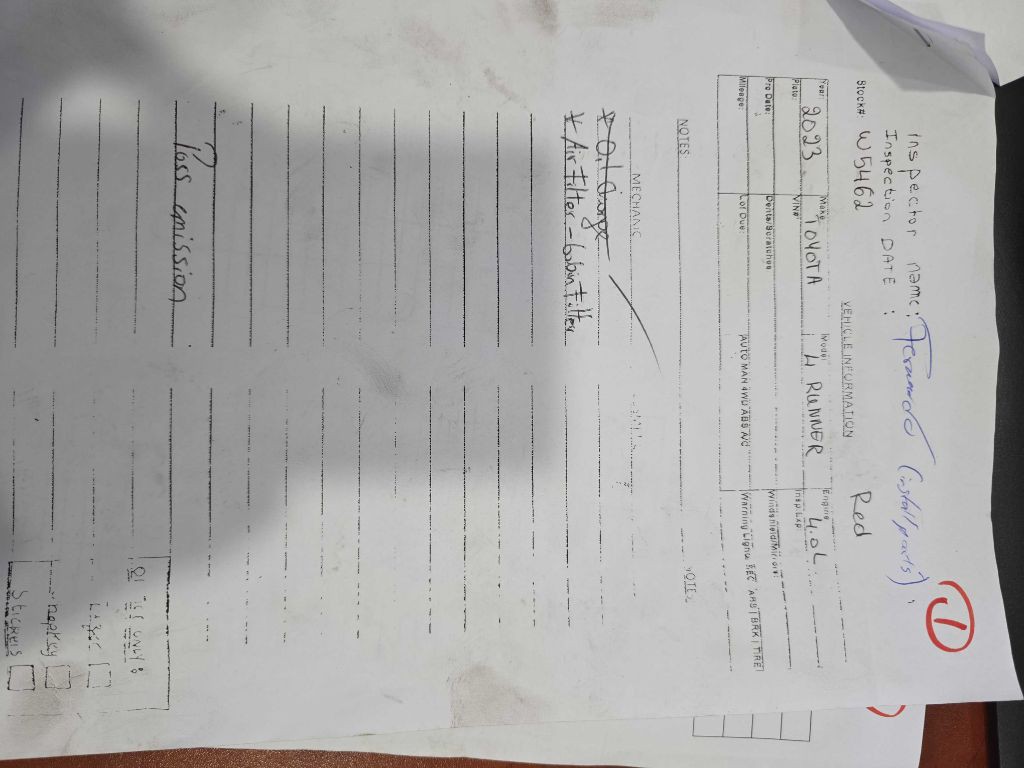 1
Inspector name: Fernando (install parts).
Inspection DATE :
Stock#: W5462 Red
VEHICLE INFORMATION
Year: 2023 Make: TOYOTA Model: 4 RUNNER Engine: 4.0L
Plate: VIN# Insp.Exp
Pro Date: Dents/Scratches Windshield/Mirrors
Mileage: Lof Due: AUTO MAN 4WD ABS A/C Warning Lights: REC ABS TBRK TIRE
NOTES NOTES
MECHANIC
* Oil change
* Air Filter - Cabin Filter
Pass emission
ONLY:
STICKERS